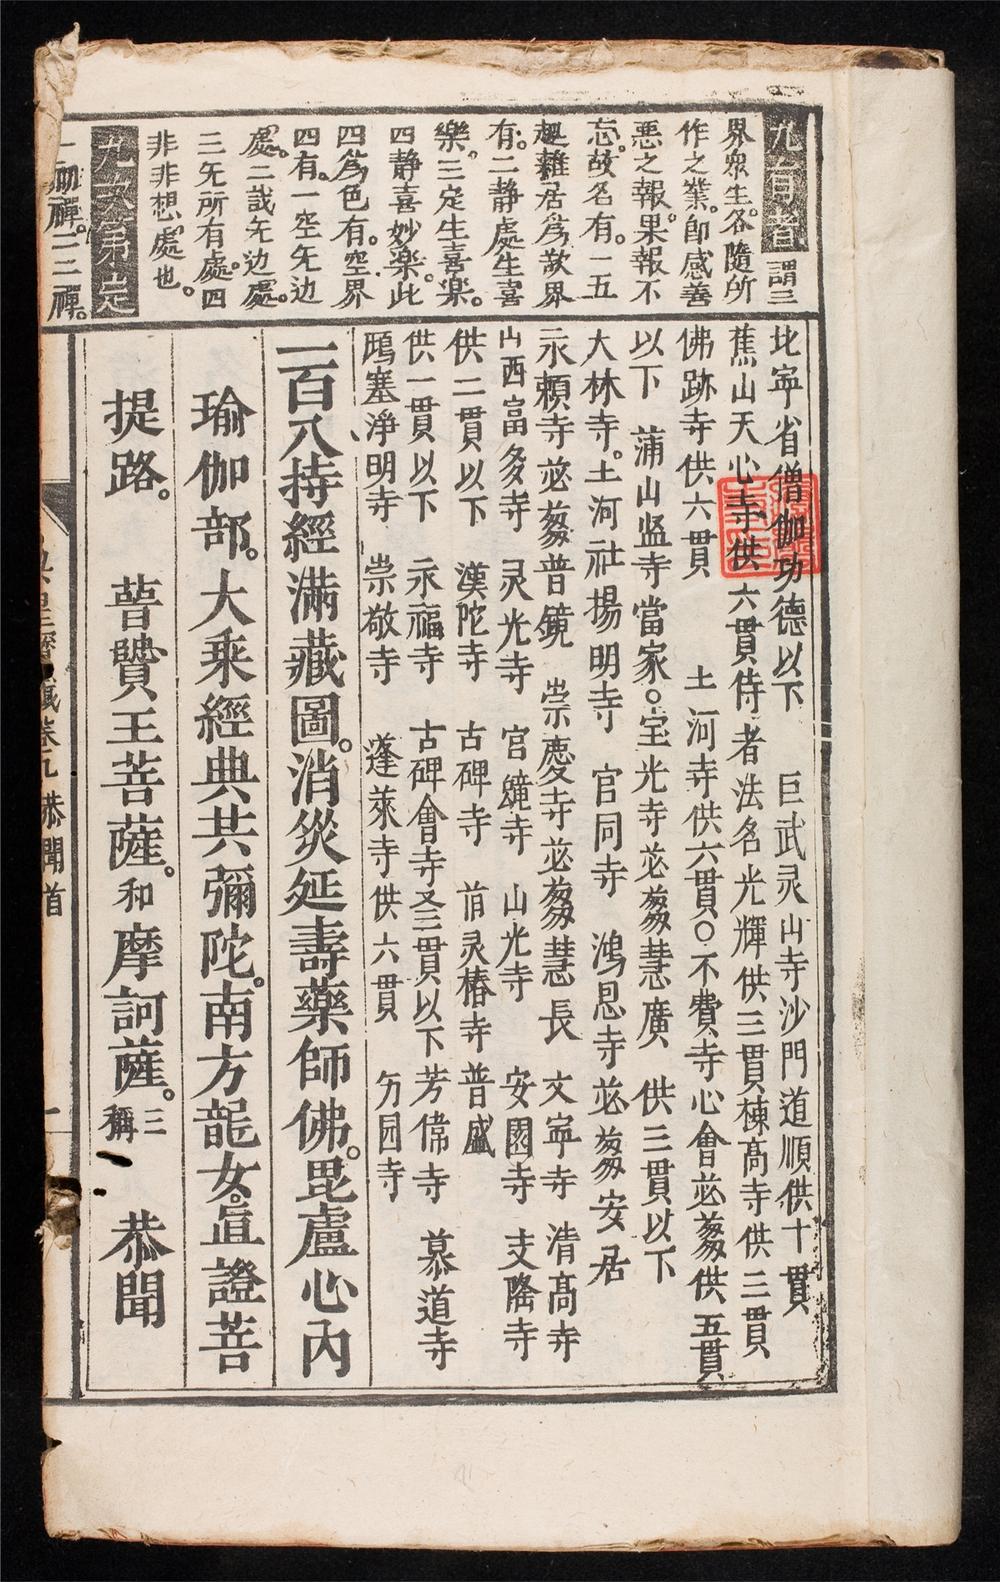 九有者謂三
界衆生各隨所
作之業即感善
悪之報果報不
忘故名有一五
趣雜居爲歎界
有二静處生喜
樂三定生喜楽
四静喜妙楽此
四爲色有空界
四有一空无边
處二識无边處
三无所有處四
非非想處也
九次第定
二禪二三禪
北寧省僧伽功德以下 巨武灵山寺沙門道順供十貫
蕉山天心寺供六貫侍者法名光輝供三貫棟髙寺供三貫
佛跡寺供六貫 土河寺供六貫○不費寺心會苾蒭供五貫
以下 蒲山盗寺當家○宝光寺苾蒭慧廣 供三貫以下
大林寺土河社揚明寺 官同寺 鴻恩寺苾蒭安居
永頼寺苾蒭普鏡 崇慶寺苾蒭慧長 文寧寺 清髙寺
山西富多寺 灵光寺 宫鐘寺 山光寺 安園寺 支隆寺
供二貫以下 漢陀寺 古碑寺 灵椿寺普盛
供一貫以下 永福寺 古碑會寺 三貫以下芳偉寺 慕道寺
鴟塞淨明寺 崇敬寺 蓬萊寺供六貫 寺
一百八持經滿藏圖消災延壽藥師佛毘盧心內
瑜伽部大乘經典共彌陀南方龍女直證菩
提路 菩贊王菩薩和摩訶薩三稱 恭聞
卷九 恭聞首
二